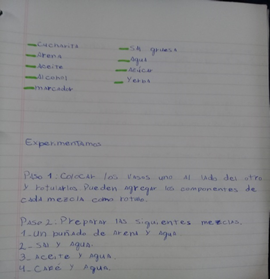 - Cucharita
- Arena
- Aceite
- Alcohol
- marcador
- Sal gruesa
- Agua
- Yerba
Experimentamos
Paso 1. Colocar los vasos uno al lado del otro
y rotularlos. Pueden agregar los componentes de
cada mezcla como rotulo.
Paso 2. Preparar las siguientes mezclas.
1- Un puñado de arena y agua.
2- Sal y agua.
3- Aceite y agua.
4- Café y agua.